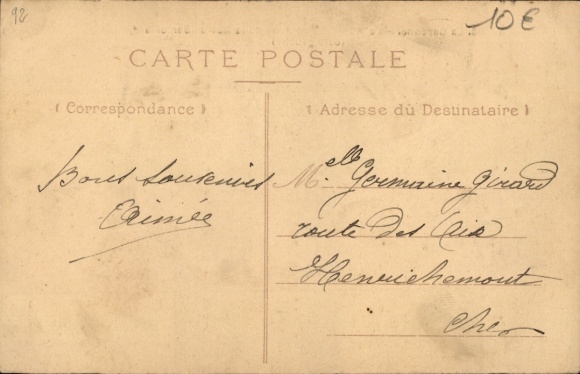 92
10€
CARTE POSTALE
(Correspondance)
(Adresse du Destinataire)
Bons souvenirs
Aimée
Melle Germaine Girard
route des Aix
Henrichemont
Cher